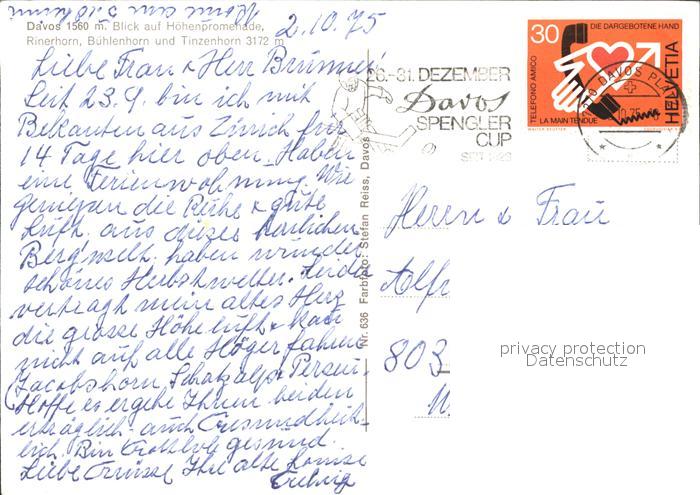 Davos 1560 m. Blick auf Höhenpromenade,
Rinerhorn, Bühlenhorn und Tinzenhorn 3172 m
2.10.75
Liebe Frau & Herr Brunner
Seit 23.9. bin ich mit
Bekannten aus Zürich für
14 Tage hier oben. Haben
eine Ferienwohnung. Wir
geniessen die Ruhe & gute
Luft. aus dieser herrlichen
Berg'welt. haben wunder
schönes Herbstwetter. Leider
vertragt mein altes Herz
die grosse Höhe luft & kan
nicht auf alle Höger fahren
(Jacobshorn Schatzalp & Parsen.
Hoffe es ergehe Ihnen beiden
erträglich. auch Gesundheit-
lich. Bin Gottlob gesund.
Liebe Grüsse Ihre alte Louise
Nr. 636 Farbfoto: Stefan Reiss, Davos
26.-31. DEZEMBER
Davos
SPENGLER
CUP
30
DIE DARGEBOTENE HAND
TELEFONO AMICO
LA MAIN TENDUE
HELVETIA
DAVOS PLATZ
Herrn & Frau
Alfr
803
privacy protection
Datenschutz